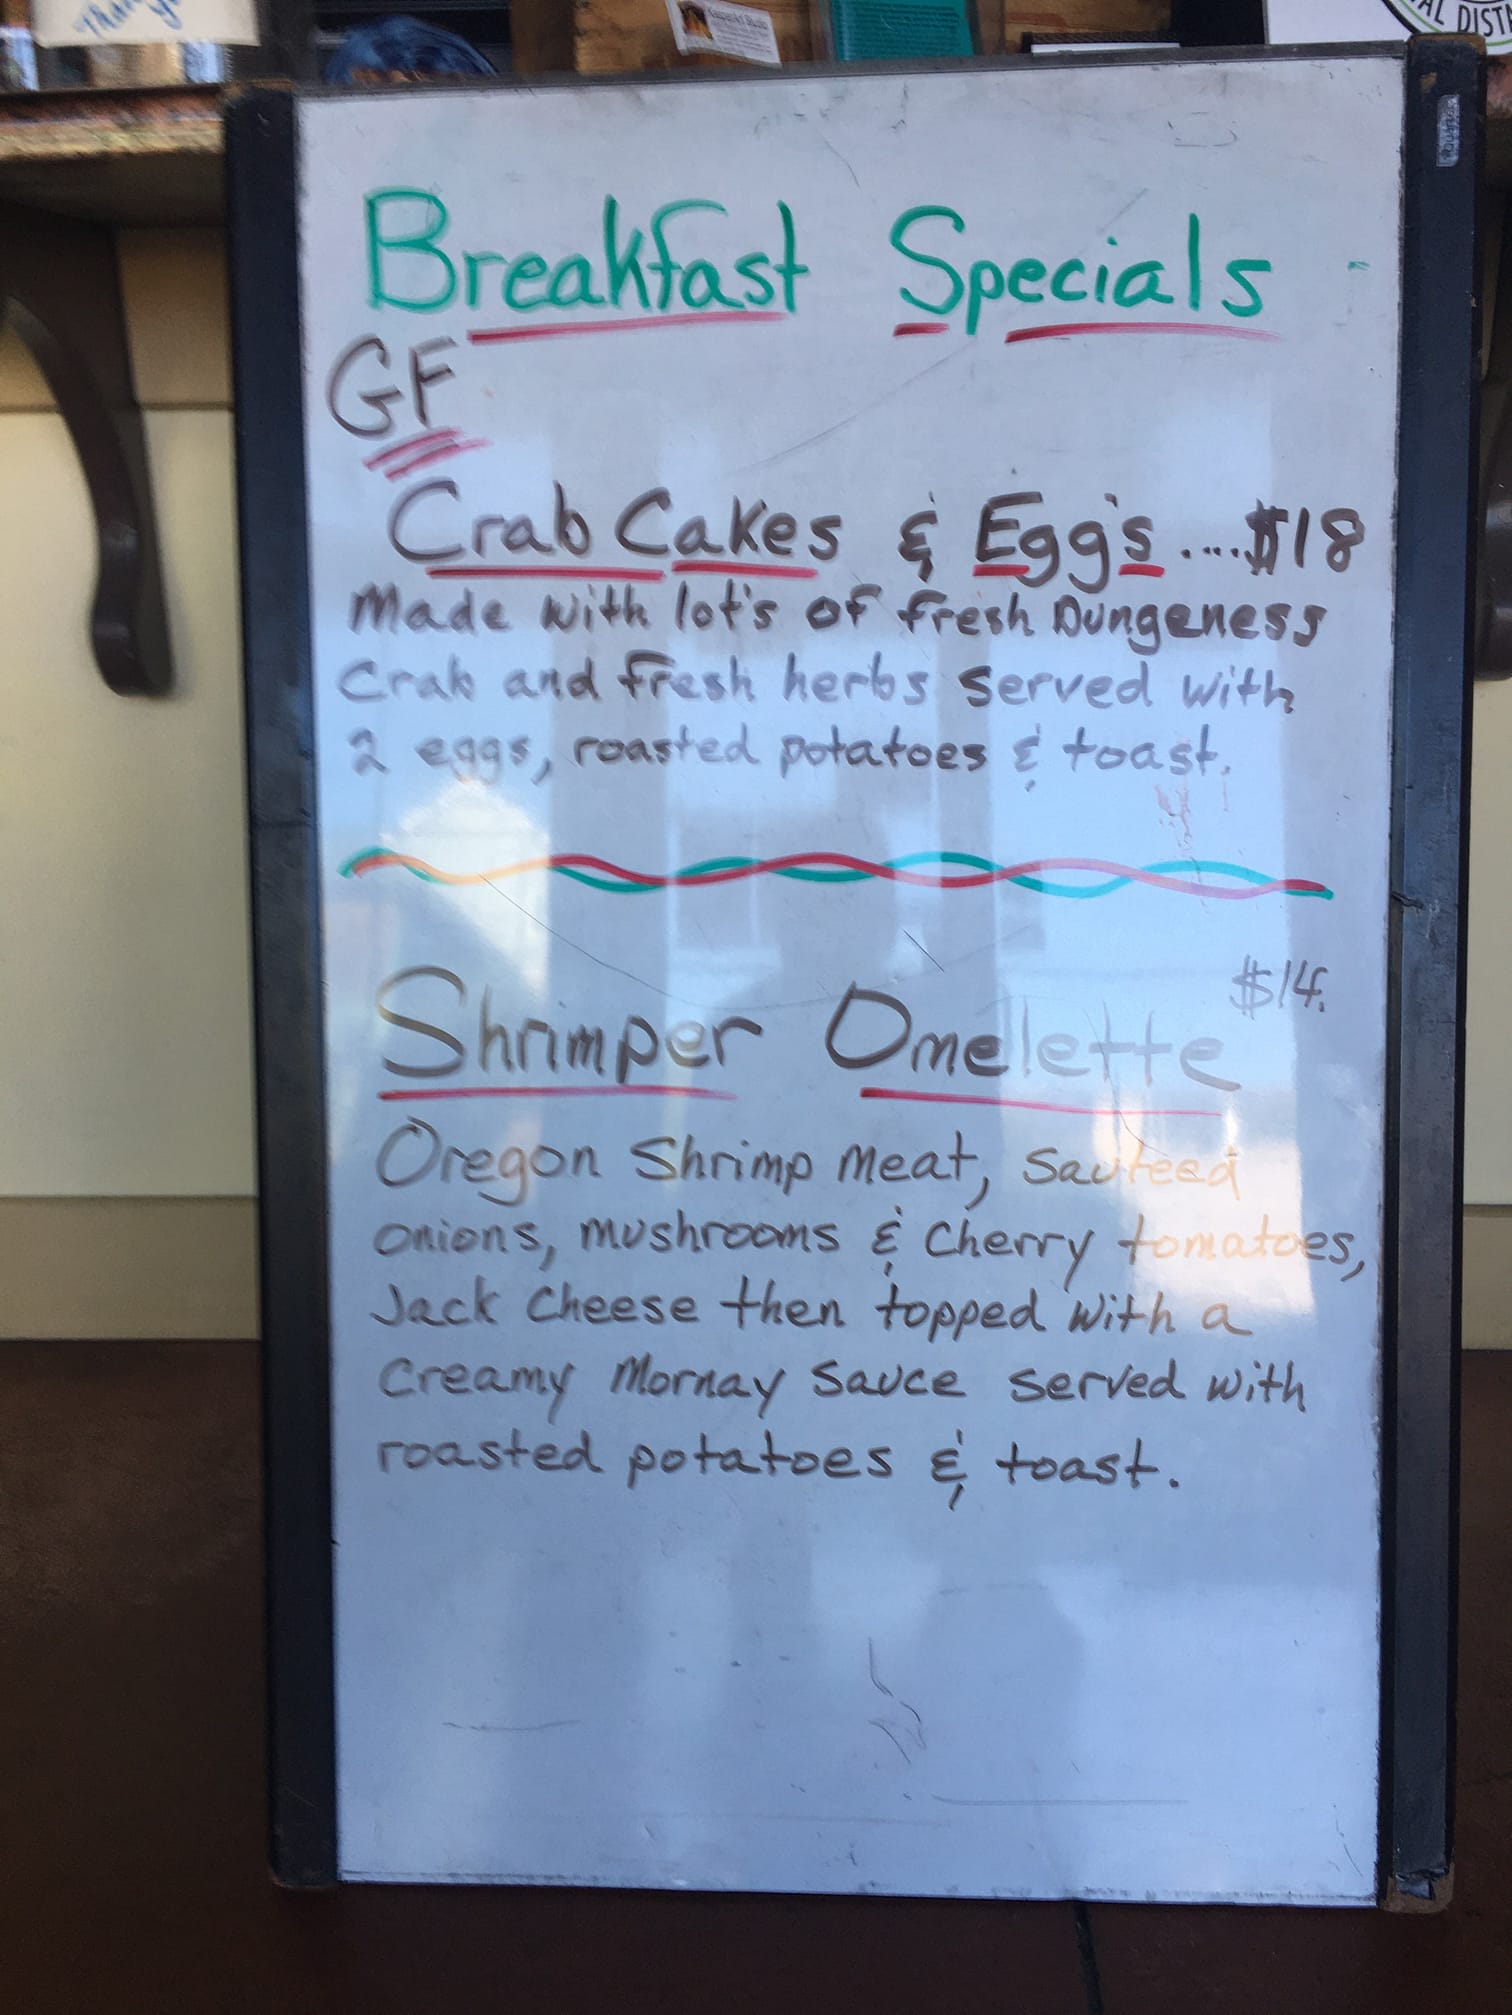 Breakfast Specials
GF
Crab Cakes & Egg's ....$18
Made with lot's of fresh Dungeness
Crab and fresh herbs served with
2 eggs, roasted potatoes & toast.
$14.
Shrimper Omelette
Oregon Shrimp meat, sauteed
onions, mushrooms & Cherry tomatoes,
Jack Cheese then topped with a
Creamy Mornay Sauce served with
roasted potatoes & toast.